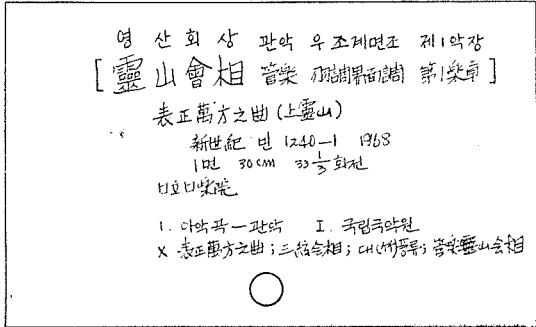 영산회상 관악 우조계면조 제1악장
[靈山會相 管樂 羽調界面調 第1樂章]
表正萬方之曲 (上靈山)
新世紀 민 1240-1 1968
1면 30cm 33 1/3 회전
1. 아악곡-관악 I. 국립국악원
X 表正萬方之曲; 三絃会相; 대 풍류; 管楽靈山会相